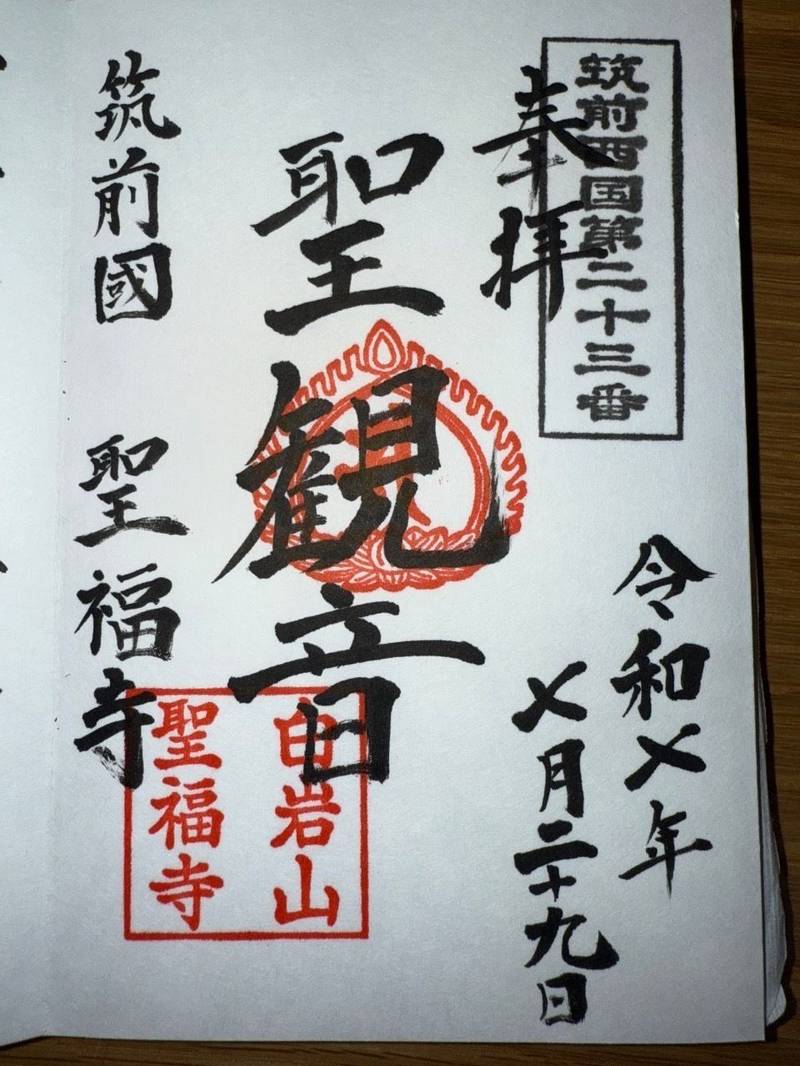 筑前西国第二十三番
奉拝
令和七年
七月二十九日
聖観音
白岩山
聖福寺
筑前國
聖福寺